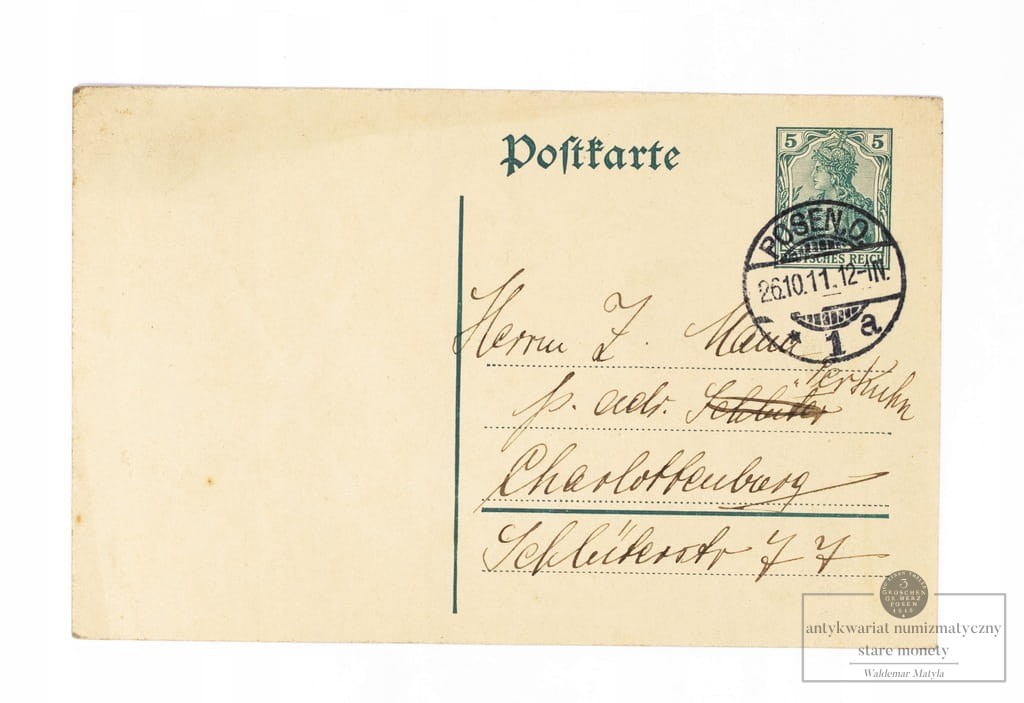 Postkarte
5 5
DEUTSCHES REICH
POSEN.O.
26.10.11.12-1N.
* 1 a
Herrn Z.
p. adr. Schlüter
Charlottenburg
Schlüterstr 77
3
GROSCHEN
GR. HERZ.
POSEN
1816
antykwariat numizmatyczny
stare monety
Waldemar Matyla